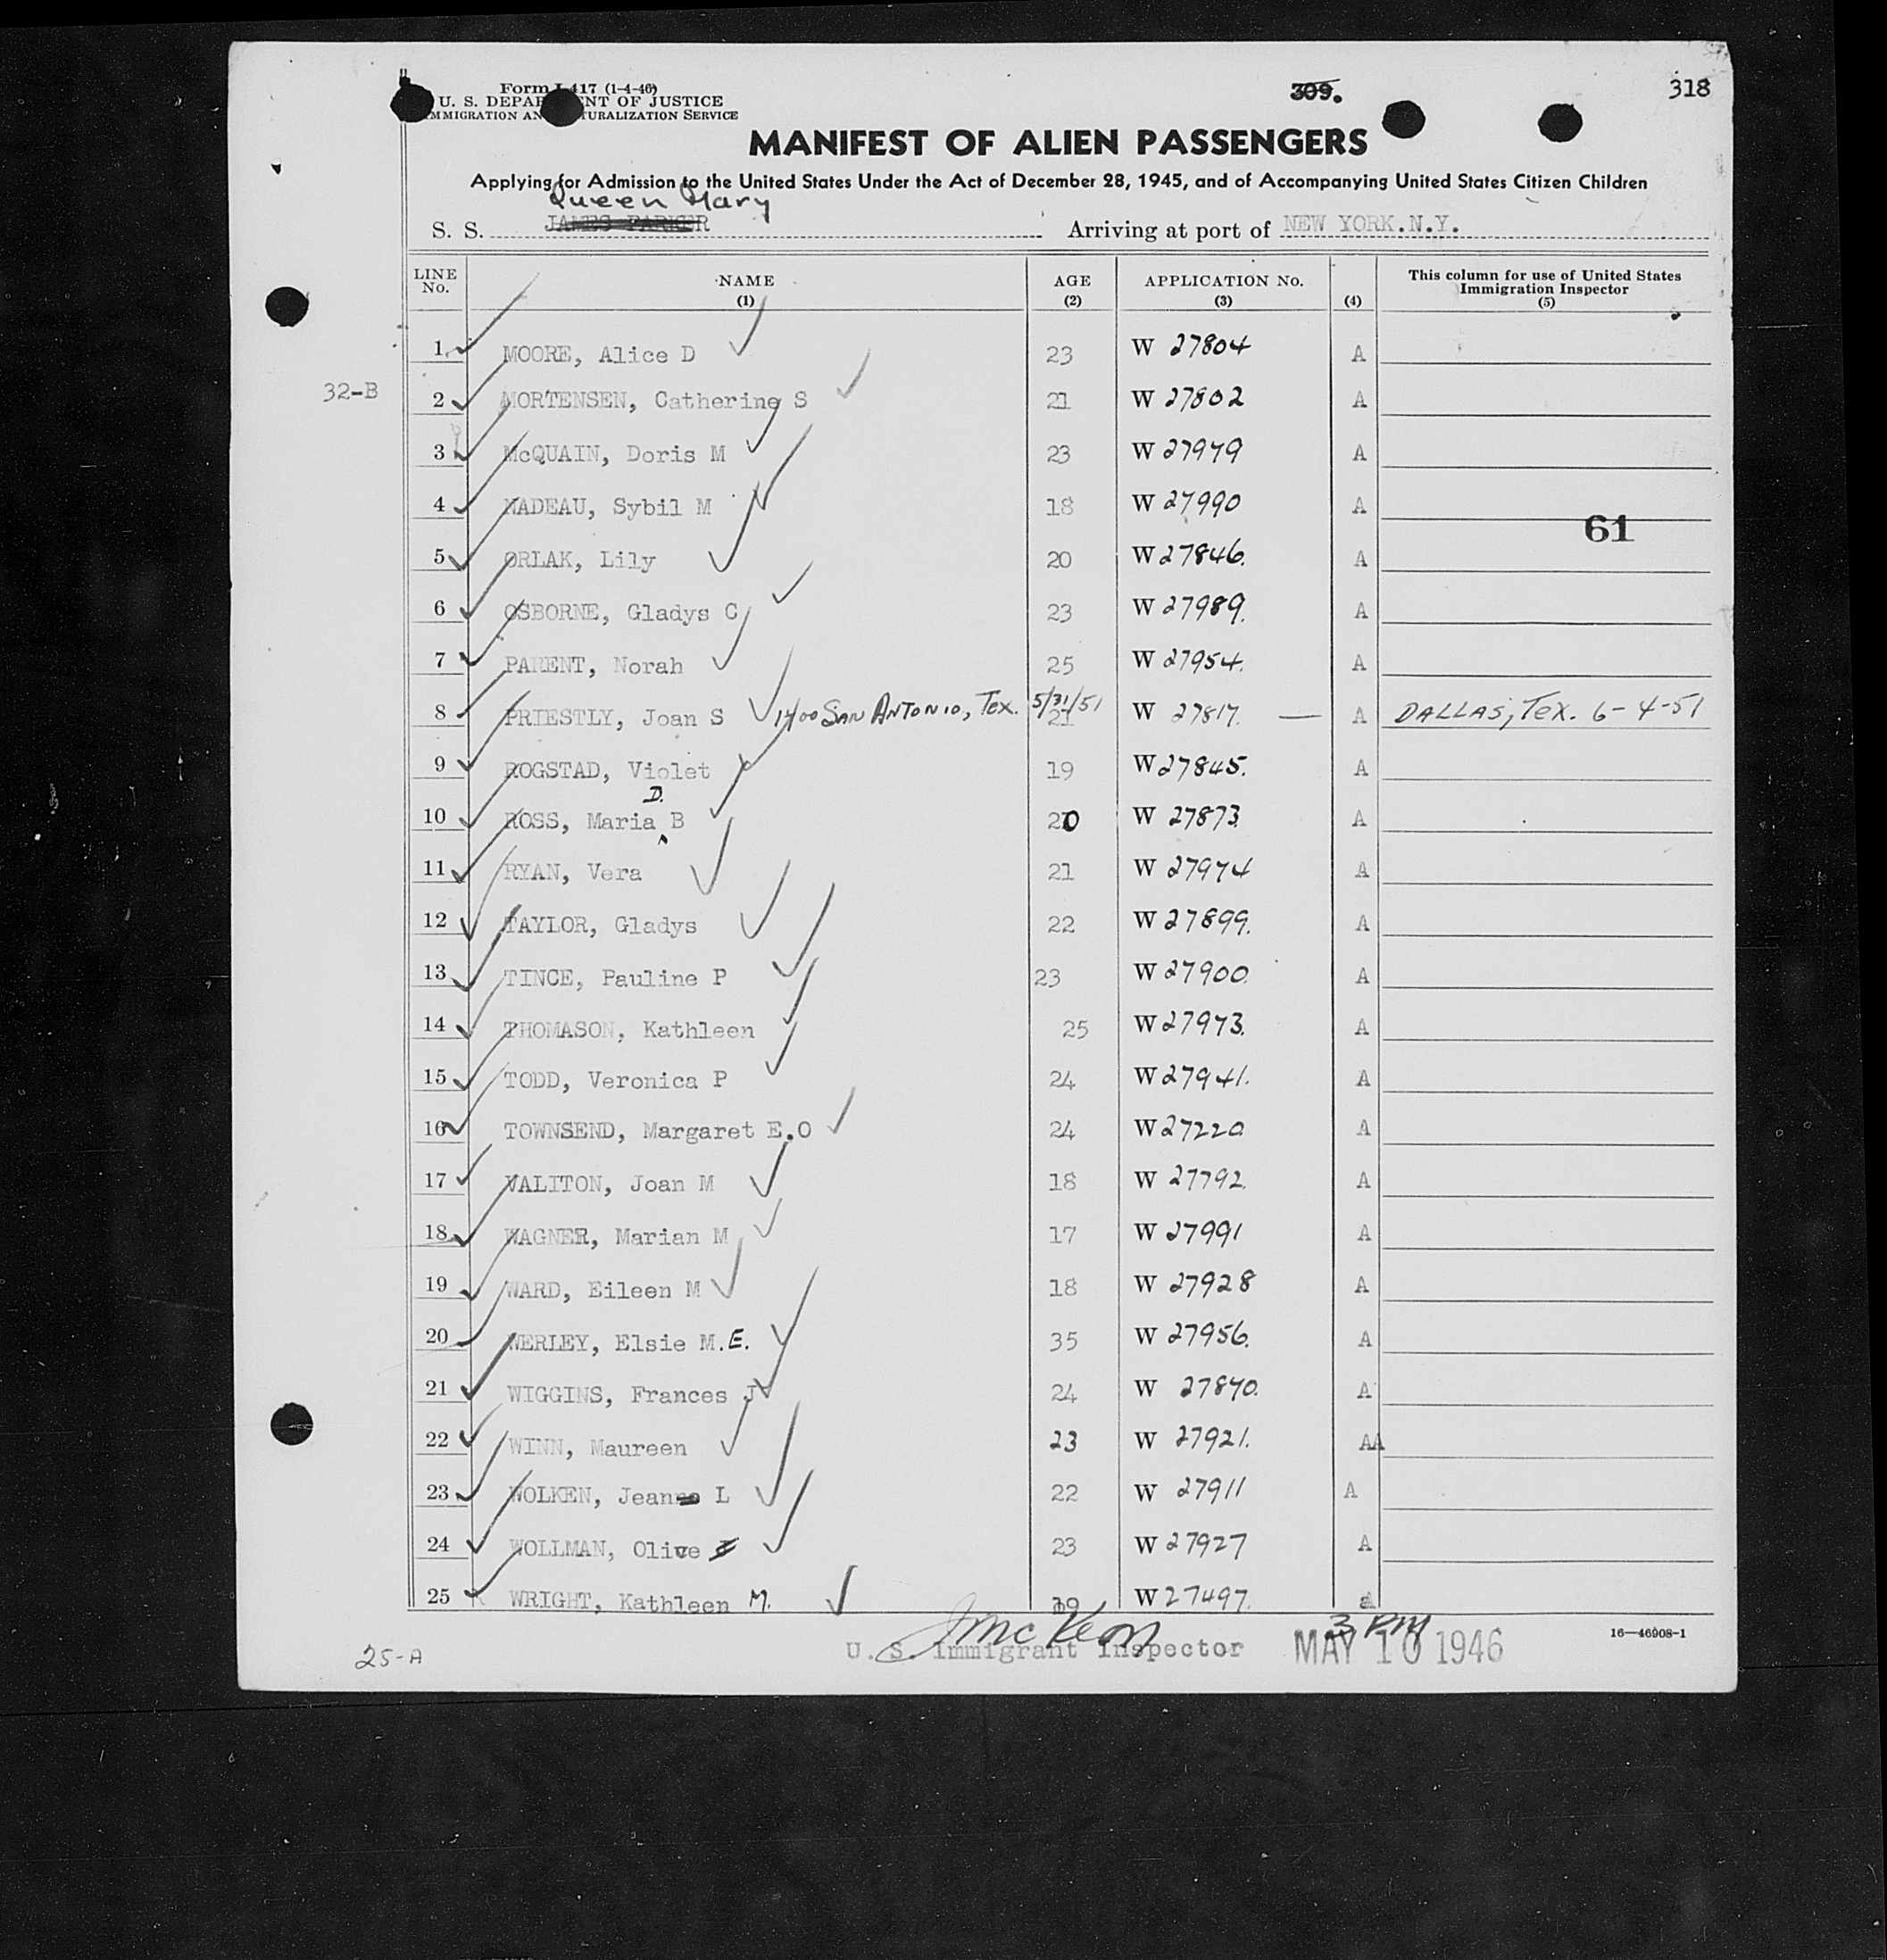 Form I-417 (1-4-46)
U. S. DEPARTMENT OF JUSTICE
IMMIGRATION AND NATURALIZATION SERVICE
309.
318
MANIFEST OF ALIEN PASSENGERS
Applying for Admission to the United States Under the Act of December 28, 1945, and of Accompanying United States Citizen Children
Queen Mary
S. S. JAMES PARKER Arriving at port of NEW YORK.N.Y.
LINE No. NAME (1) AGE (2) APPLICATION No. (3) (4) This column for use of United States Immigration Inspector (5)
1 MOORE, Alice D 23 W 27804 A
32-B
2 MORTENSEN, Catherine S 21 W 27802 A
3 McQUAIN, Doris M 23 W 27979 A
4 NADEAU, Sybil M 18 W 27990 A
61
5 ORLAK, Lily 20 W 27846. A
6 OSBORNE, Gladys C 23 W 27989. A
7 PARENT, Norah 25 W 27954. A
8 PRIESTLY, Joan S 1400 SAN ANTONIO, Tex. 5/31/51 21 W 27817. — A DALLAS, Tex. 6-4-51
9 ROGSTAD, Violet 19 W 27845. A
10 ROSS, Maria D. B 20 W 27873. A
11 RYAN, Vera 21 W 27974 A
12 TAYLOR, Gladys 22 W 27899. A
13 TINCE, Pauline P 23 W 27900. A
14 THOMASON, Kathleen 25 W 27973. A
15 TODD, Veronica P 24 W 27941. A
16 TOWNSEND, Margaret E.O 24 W 27220 A
17 VALITON, Joan M 18 W 27792. A
18 WAGNER, Marian M 17 W 27991 A
19 WARD, Eileen M 18 W 27928 A
20 WERLEY, Elsie M.E. 35 W 27956. A
21 WIGGINS, Frances J 24 W 27870. A
22 WINN, Maureen 23 W 27921. AA
23 WOLKEN, Jean L 22 W 27911 A
24 WOLLMAN, Olive 23 W 27927 A
25 WRIGHT, Kathleen M. 19 W 27497. A
J McKeon 3 PM
U. S. Immigrant Inspector MAY 10 1946
16—46908-1
25-A